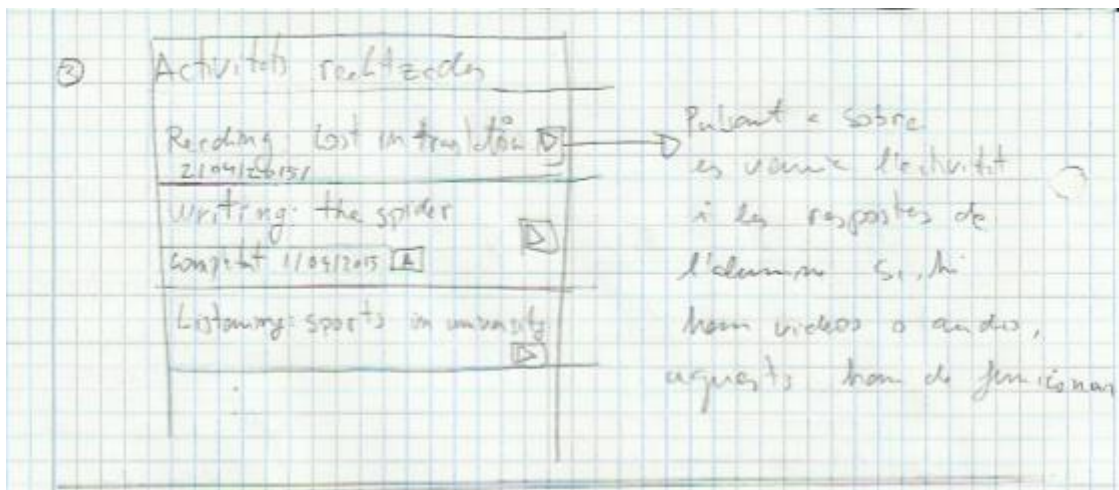 3
Activitats realitzades
Reading: Lost in translation
21/04/2015
Writing: the spider
completat 1/04/2015 A
Listening: sports in university
Pulsant a sobre
es veurà l'activitat
i les respostes de
l'alumne si hi
han videos o audios,
aquests han de funcionar